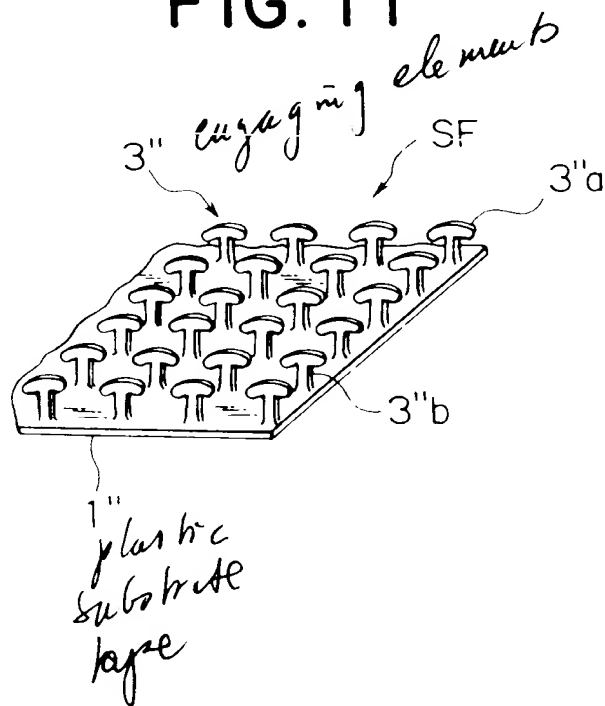 FIG. 11
engaging elements
3"
SF
3"a
3"b
1"
plastic
substrate
tape